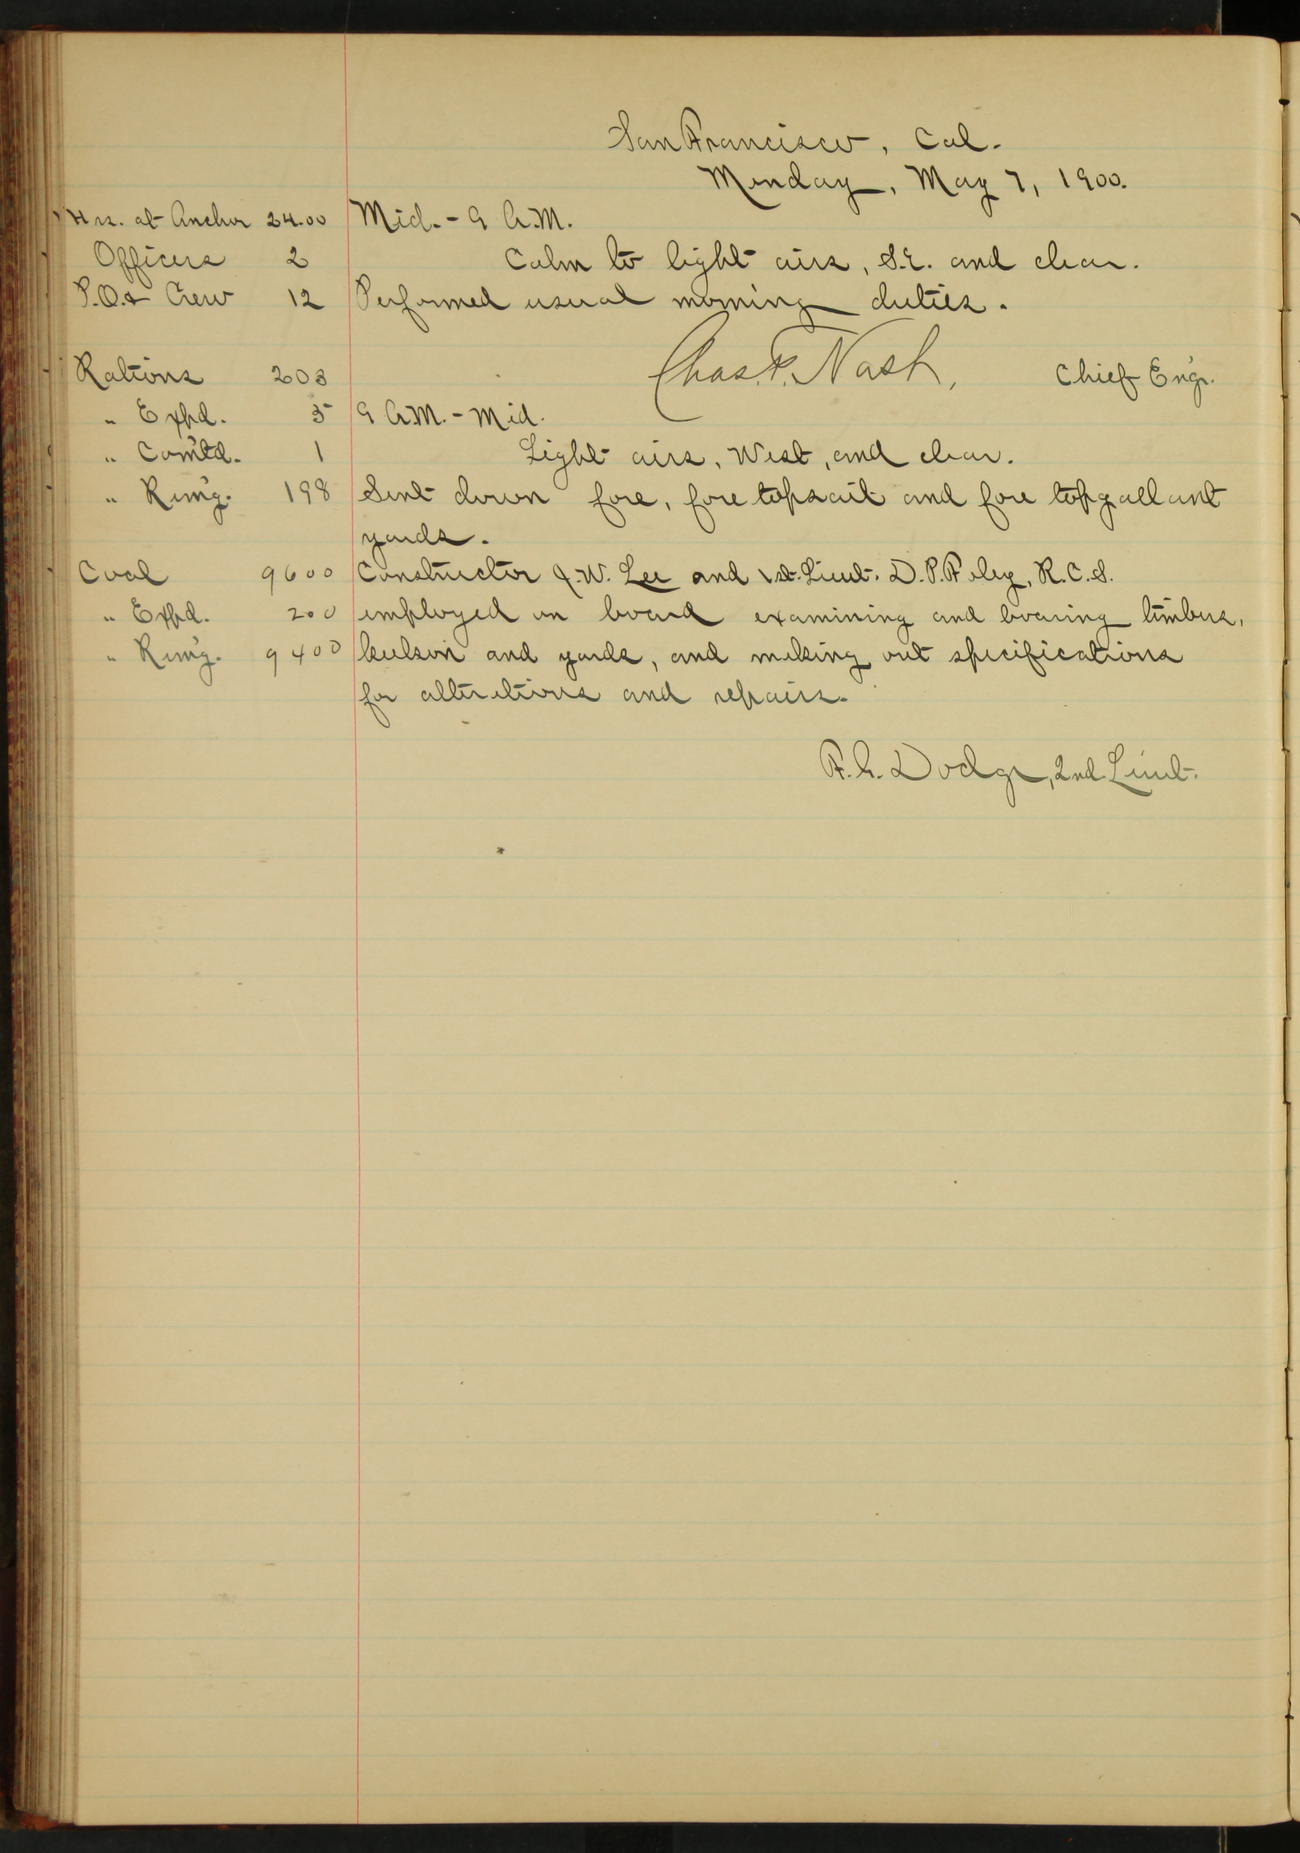 San Francisco, Cal.
Monday, May 7, 1900.
Hrs. at Anchor 24.00 Mid. - 9 A.M.
Officers 2 Calm to light airs, S.E. and clear.
P.O.& Crew 12 Performed usual morning duties.
Rations 203 Chas. F. Nash, Chief Eng'r.
" Expd. 5 9 A.M. - Mid.
" Com'td. 1 Light airs, West, and clear.
" Rem'g. 198 Sent down fore, fore topsail and fore topgallant
yards.
Coal 9600 Constructor J.W. Lee and 1st. Lieut. D.P. Foley, R.C.S.
" Expd. 200 employed on board examining and boaring timbers,
" Rem'g. 9400 keelson and yards, and making out specifications
for alterations and repairs.
F.G. Dodge, 2nd. Lieut.